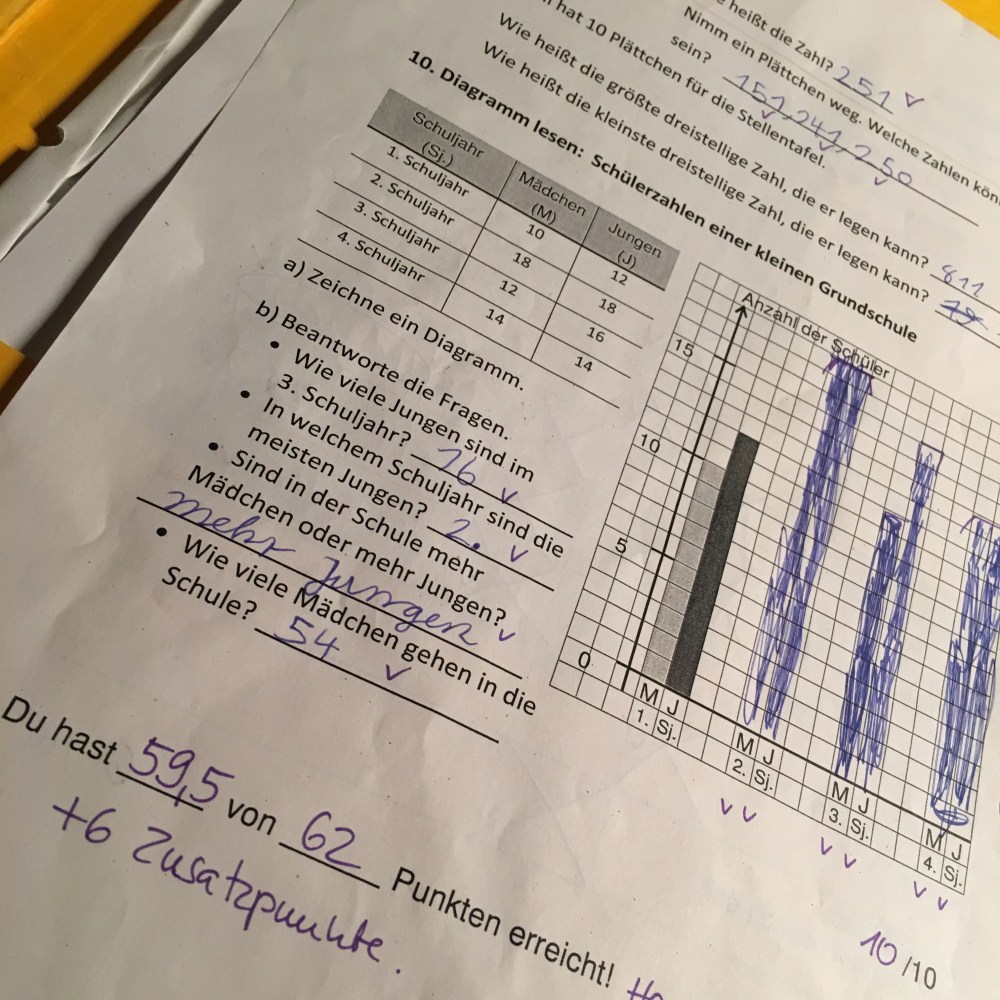 heißt die Zahl? 251
Nimm ein Plättchen weg. Welche Zahlen
sein? 151, 241, 250
hat 10 Plättchen für die Stellentafel.
Wie heißt die größte dreistellige Zahl, die er legen kann? 811
Wie heißt die kleinste dreistellige Zahl, die er legen kann?
10. Diagramm lesen: Schülerzahlen einer kleinen Grundschule
Schuljahr (Sj.) Mädchen (M) Jungen (J)
1. Schuljahr 10 12
2. Schuljahr 18 18
3. Schuljahr 12 16
4. Schuljahr 14 14
a) Zeichne ein Diagramm.
b) Beantworte die Fragen.
• Wie viele Jungen sind im
3. Schuljahr? 16
• In welchem Schuljahr sind die
meisten Jungen? 2.
• Sind in der Schule mehr
Mädchen oder mehr Jungen?
mehr Jungen
• Wie viele Mädchen gehen in die
Schule? 54
Anzahl der Schüler
15
10
5
0
M J M J M J M J
1. Sj. 2. Sj. 3. Sj. 4. Sj.
10/10
Du hast 59,5 von 62 Punkten erreicht!
+6 Zusatzpunkte.